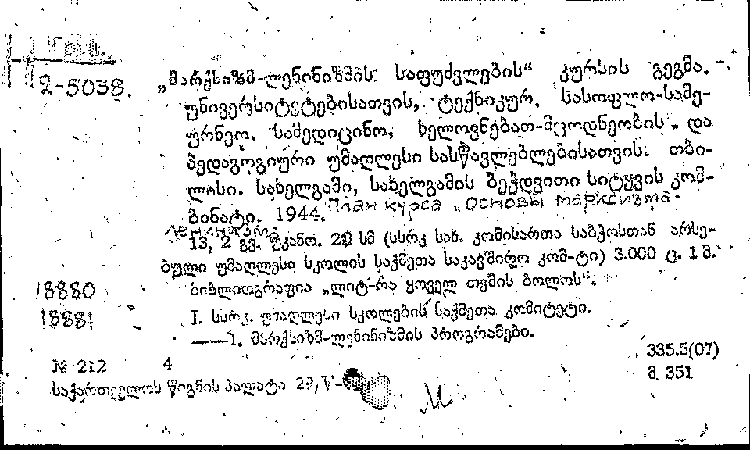 2-5038.
„მარქსიზმ-ლენინიზმის საფუძვლების“ კურსის გეგმა.
უნივერსიტეტებისათვის, ტექნიკურ, სასოფლო-სამე-
ურნეო, სამედიცინო, ხელოვნებათ-მცოდნეობის და
პედაგოგიური უმაღლესი სასწავლებლებისათვის. თბი-
ლისი. სახელგამი, სახელგამის ბეჭდვითი სიტყვის კომ-
ბინატი. 1944. План курса „Основы марксизма-
ленинизма
13, 2 გვ. უკანო. 20 სმ (სსრკ სახ. კომისართა საბჭოსთან არსე-
ბული უმაღლესი სკოლის საქმეთა საკავშირო კომ-ტი) 3.000 ც. 1 მ.
ბიბლიოგრაფია „ლიტ-რა ყოველ თემის ბოლოს“.
18880
I. სსრკ. უმაღლესი სკოლების საქმეთა კომიტეტი.
18881
1. მარქსიზმ-ლენინიზმის პროგრამები.
№ 212 4
335.5(07)
მ. 351
საქართველოს წიგნის პალატა 29/V-